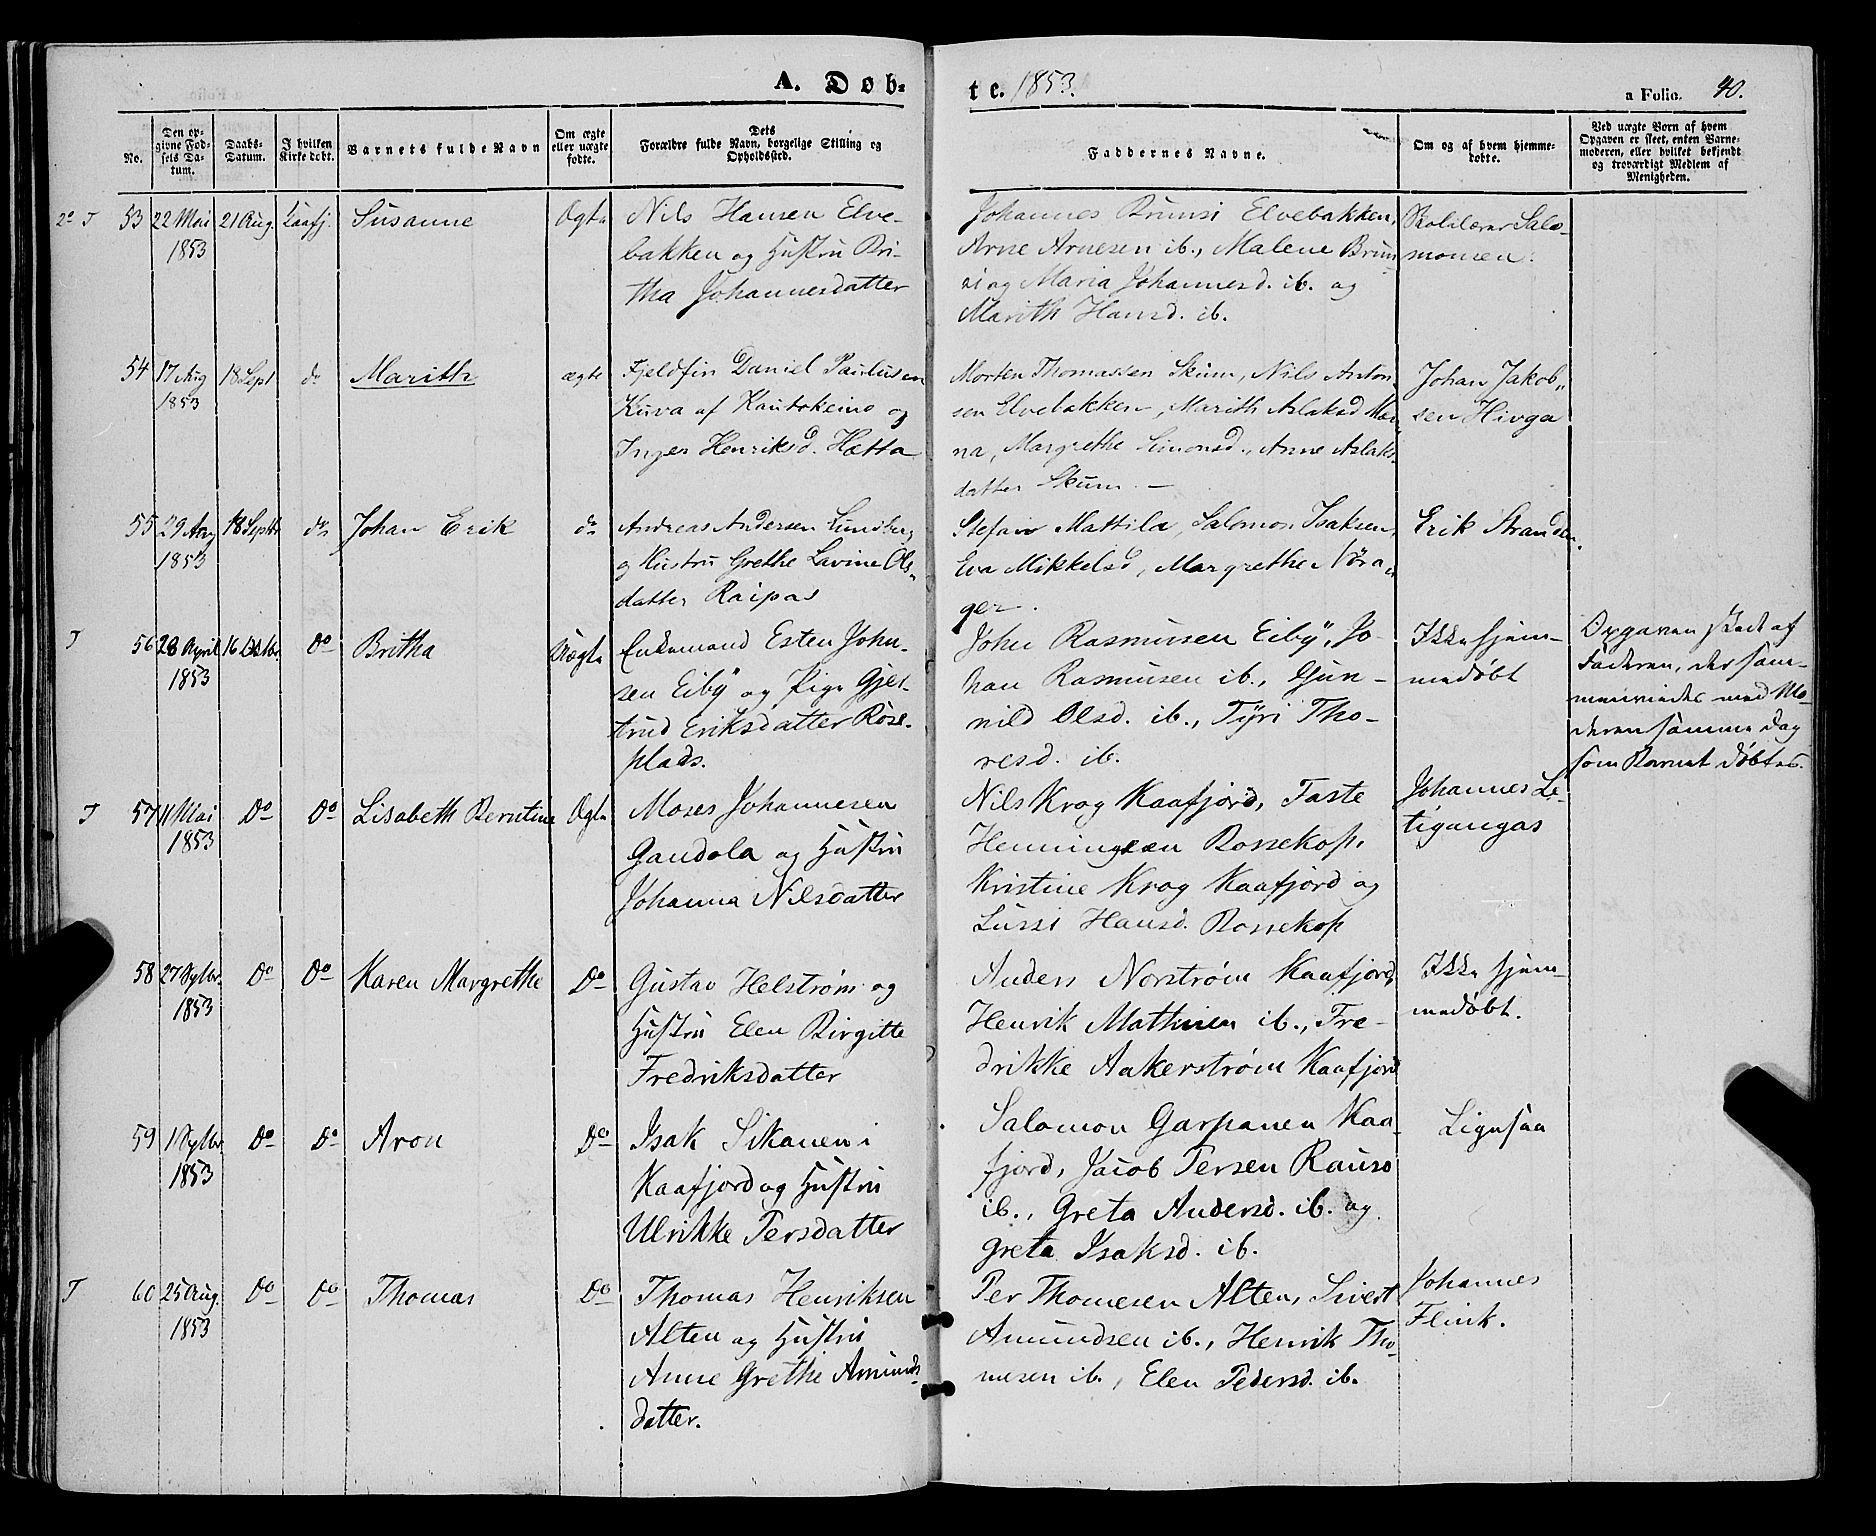 A. Døb-
te. 1853.
a Folio. 40.
No.
Den opgivne Fødsels Datum.
Daabs-Datum.
I hvilken Kirke døbt.
Barnets fulde Navn
Om ægte eller uægte fødte.
Dets Forældre fulde Navn, borgelige Stilling og Opholdssted.
Faddernes Navne.
Om og af hvem hjemmedøbte.
Ved uægte Børn af hvem Opgaven er skeet, enten Barnemoderen, eller hvilket bekjendt og troværdigt Medlem af Menigheden.
2° T 53 22 Mai 1853 21 Aug. Kaafj. Susanne Ægte
Nils Hansen Elve-
bakken og Hustru Bri-
tha Johannesdatter
Johannes Brunsi Elvebakken,
Arne Arnesen ib., Malene Brun-
si og Maria Johannesd. ib. og
Marith Hansd. ib.
Skolelærer Salo-
monsen.
54 17 Aug 1853 18 Sept do Marith ægte
Fjeldfin Daniel Paulusen
Kurva af Kautokeino og
Inger Henriksd. Hætta
Morten Thomassen Skum, Nils Anton-
sen Elvebakken, Marith Aslaksd
Margrethe Simonsd., Anne Aslaks-
datter Skum. —
Johan Jakob-
sen Hivga
55 29 Aug 1853 18 Septb do Johan Erik do
Andreas Andersen Lundberg
og Hustru Grethe Lavine Ols-
datter Raipas
Stefan Mattila, Salomon Isaksen,
Eva Mikkelsd, Margrethe Nöra-
ger.
Erik Strand
T 56 28 April 1853 16 Octbr. Do Britha Uægte
Enkemand Esten John-
sen Eiby og Pige Gjer-
trud Eriksdatter Röse-
plads.
John Rasmussen Eiby, Jo-
han Rasmusen ib., Gun-
nild Olsd. ib., Tÿri Tho-
resd. ib.
Ikke hjem-
medøbt
Opgaven skeet af
Faderen, der sam-
menviedes med Mo-
deren samme Dag
som Barnet døbtes.
T 57 11 Mai 1853 Do Do Lisabeth Berntine Ægte
Moses Johannesen
Gandola og Hustru
Johanna Nilsdatter
Nils Krog Kaafjord, Faste
Henningsen Bossekop,
Kristine Krog Kaafjord og
Lussi Hansd. Bossekop
Johannes Le-
tigangas
58 27 Sptbr. 1853 Do Do Karen Margrethe Do
Gustav Helstrøm og
Hustru Elen Birgitte
Fredriksdatter
Anders Norstrøm Kaafjord,
Henrik Mathisen ib., Fre-
drikke Aakerstrøm Kaafjord
Ikke hjem-
medøbt.
59 1 Sptbr 1853 Do Do Aron Do
Isak Sikanen i
Kaafjord og Hustru
Ulrikke Persdatter
Salomon Garpanen Kaa-
fjord, Jacob Persen Rauso
ib., Greta Andersd. ib. og
Greta Isaksd. ib.
Ligesaa
T 60 25 Aug. 1853 Do Do Thomas Do
Thomas Henriksen
Alten og Hustru
Anne Grethe Amunds-
datter.
Per Thomesen Alten, Sivert
Amundsen ib., Henrik Tho-
mesen ib., Elen Pedersd. ib.
Johannes
Flink.